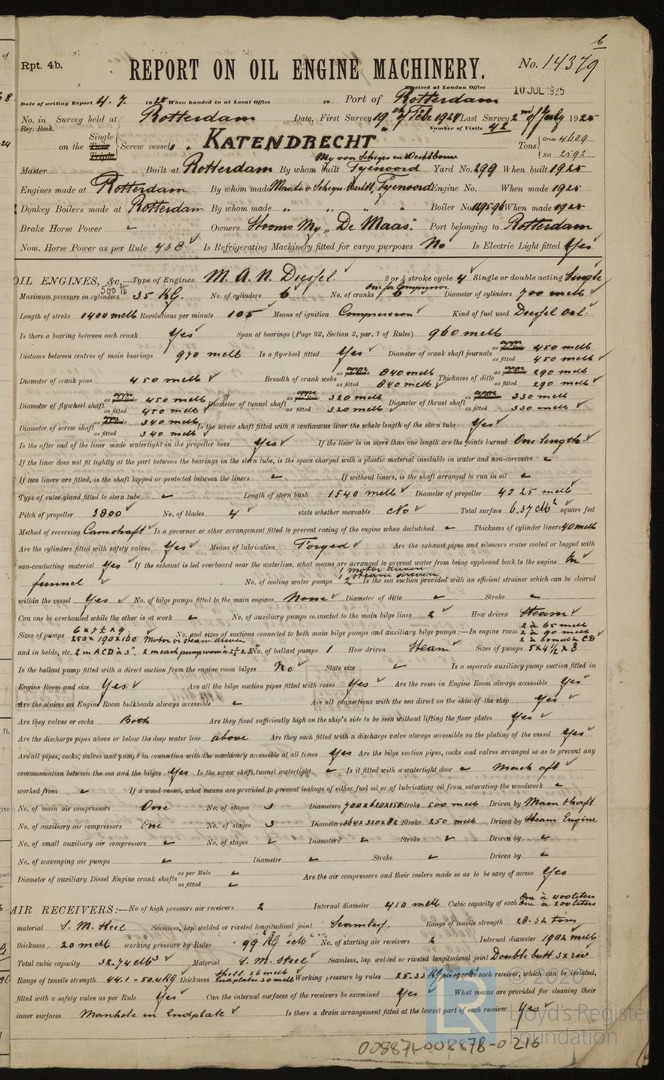 6
Rpt. 4b.
REPORT ON OIL ENGINE MACHINERY.
No. 14379
Received at London Office 10 JUL 1925
Date of writing Report 4.7. 1925 When handed in at Local Office 19 Port of Rotterdam
No. in Survey held at Rotterdam Date, First Survey 19th of Febr. 1924 Last Survey 2nd of July 1925
Reg. Book. Number of Visits 42
on the Single Screw vessel KATENDRECHT Tons Gross 4609
Net 2592
Master Built at Rotterdam By whom built Fyenoord Yard No. 299 When built 1925
Engines made at Rotterdam By whom made Fyenoord Engine No. When made 1925
Donkey Boilers made at Rotterdam By whom made " " " Boiler No. When made 1925
Brake Horse Power Owners Stoomv My "De Maas" Port belonging to Rotterdam
Nom. Horse Power as per Rule 438 Is Refrigerating Machinery fitted for cargo purposes No Is Electric Light fitted Yes
OIL ENGINES, &c.—Type of Engines M.A.N. Diesel 2 or 4 stroke cycle 4 Single or double acting Single
Maximum pressure in cylinders 35 KG. No. of cylinders 6 No. of cranks 6 Diameter of cylinders 700 m/m
Length of stroke 1400 m/m Revolutions per minute 105 Means of ignition Compression Kind of fuel used Diesel Oil
Is there a bearing between each crank Yes Span of bearings (Page 92, Section 2, par. 7 of Rules) 960 m/m
Distance between centres of main bearings 970 m/m Is a flywheel fitted Yes Diameter of crank shaft journals 450 m/m
as fitted 450 m/m
Diameter of crank pins 450 m/m Breadth of crank webs 840 m/m Thickness of ditto 290 m/m
as fitted 840 m/m as fitted 290 m/m
Diameter of flywheel shaft 450 m/m Diameter of tunnel shaft 320 m/m Diameter of thrust shaft 330 m/m
as fitted 450 m/m as fitted 320 m/m as fitted 330 m/m
Diameter of screw shaft 340 m/m Is the screw shaft fitted with a continuous liner the whole length of the stern tube Yes
as fitted 340 m/m
Is the after end of the liner made watertight in the propeller boss Yes If the liner is in more than one length are the joints burned One length
If the liner does not fit tightly at the part between the bearings in the stern tube, is the space charged with a plastic material insoluble in water and non-corrosive
If two liners are fitted, is the shaft lapped or protected between the liners If without liners, is the shaft arranged to run in oil
Type of outer gland fitted to stern tube Length of stern bush 1540 m/m Diameter of propeller 4325 m/m
Pitch of propeller 3800 No. of blades 4 state whether moveable No Total surface 6.37 square feet
Method of reversing Camshaft Is a governor or other arrangement fitted to prevent racing of the engine when declutched Thickness of cylinder liners 40 m/m
Are the cylinders fitted with safety valves Yes Means of lubrication Forged Are the exhaust pipes and silencers water cooled or lagged with
non-conducting material Yes If the exhaust is led overboard near the waterline, what means are arranged to prevent water from being syphoned back to the engine In
funnel No. of cooling water pumps 1 motor driven 2 steam driven Is the sea suction provided with an efficient strainer which can be cleared
within the vessel Yes No. of bilge pumps fitted to the main engines None Diameter of ditto Stroke
Can one be overhauled while the other is at work No. of auxiliary pumps connected to the main bilge lines 2 How driven Steam
Sizes of pumps No. and sizes of suctions connected to both main bilge pumps and auxiliary bilge pumps:—In engine room
and in holds, etc. No. of ballast pumps 1 How driven Steam Sizes of pumps
Is the ballast pump fitted with a direct suction from the engine room bilges No State size Is a separate auxiliary pump suction fitted in
Engine Room and size Yes Are all the bilge suction pipes fitted with roses Yes Are the roses in Engine Room always accessible Yes
Are the sluices on Engine Room bulkheads always accessible Are all connections with the sea direct on the skin of the ship Yes
Are they valves or cocks Both Are they fixed sufficiently high on the ship's side to be seen without lifting the floor plates Yes
Are the discharge pipes above or below the deep water line above Are they each fitted with a discharge valve always accessible on the plating of the vessel Yes
Are all pipes, cocks, valves and pumps in connection with the machinery accessible at all times Yes Are the bilge suction pipes, cocks and valves arranged so as to prevent any
communication between the sea and the bilges Yes Is the screw shaft tunnel watertight Is it fitted with a watertight door Mach aft
worked from If a wood vessel, what means are provided to prevent leakage of either fuel oil or of lubricating oil from saturating the woodwork
No. of main air compressors One No. of stages 3 Diameters Stroke 500 m/m Driven by Main Shaft
No. of auxiliary air compressors One No. of stages 3 Diameters Stroke 250 m/m Driven by Steam Engine
No. of small auxiliary air compressors No. of stages Diameters Stroke Driven by
No. of scavenging air pumps Diameter Stroke Driven by
Diameter of auxiliary Diesel Engine crank shafts as per Rule Are the air compressors and their coolers made so as to be easy of access Yes
as fitted
AIR RECEIVERS:—No. of high pressure air receivers 2 Internal diameter 410 m/m Cubic capacity of each One a 400 liters One a 200 liters
material S.M. Steel Seamless, lap welded or riveted longitudinal joint Seamless Range of tensile strength 28-32 tons
thickness 20 m/m working pressure by Rules No. of starting air receivers 2 Internal diameter
Total cubic capacity Material S.M. Steel Seamless, lap welded or riveted longitudinal joint Double butt
Range of tensile strength 44.1 - 50.4 KG thickness Working pressure by rules each receiver, which can be isolated,
fitted with a safety valve as per Rule Yes Can the internal surfaces of the receivers be examined Yes What means are provided for cleaning their
inner surfaces Manhole in Endplate Is there a drain arrangement fitted at the lowest part of each receiver Yes
008871-008878-0216
© 2020
Lloyd's Register
Foundation